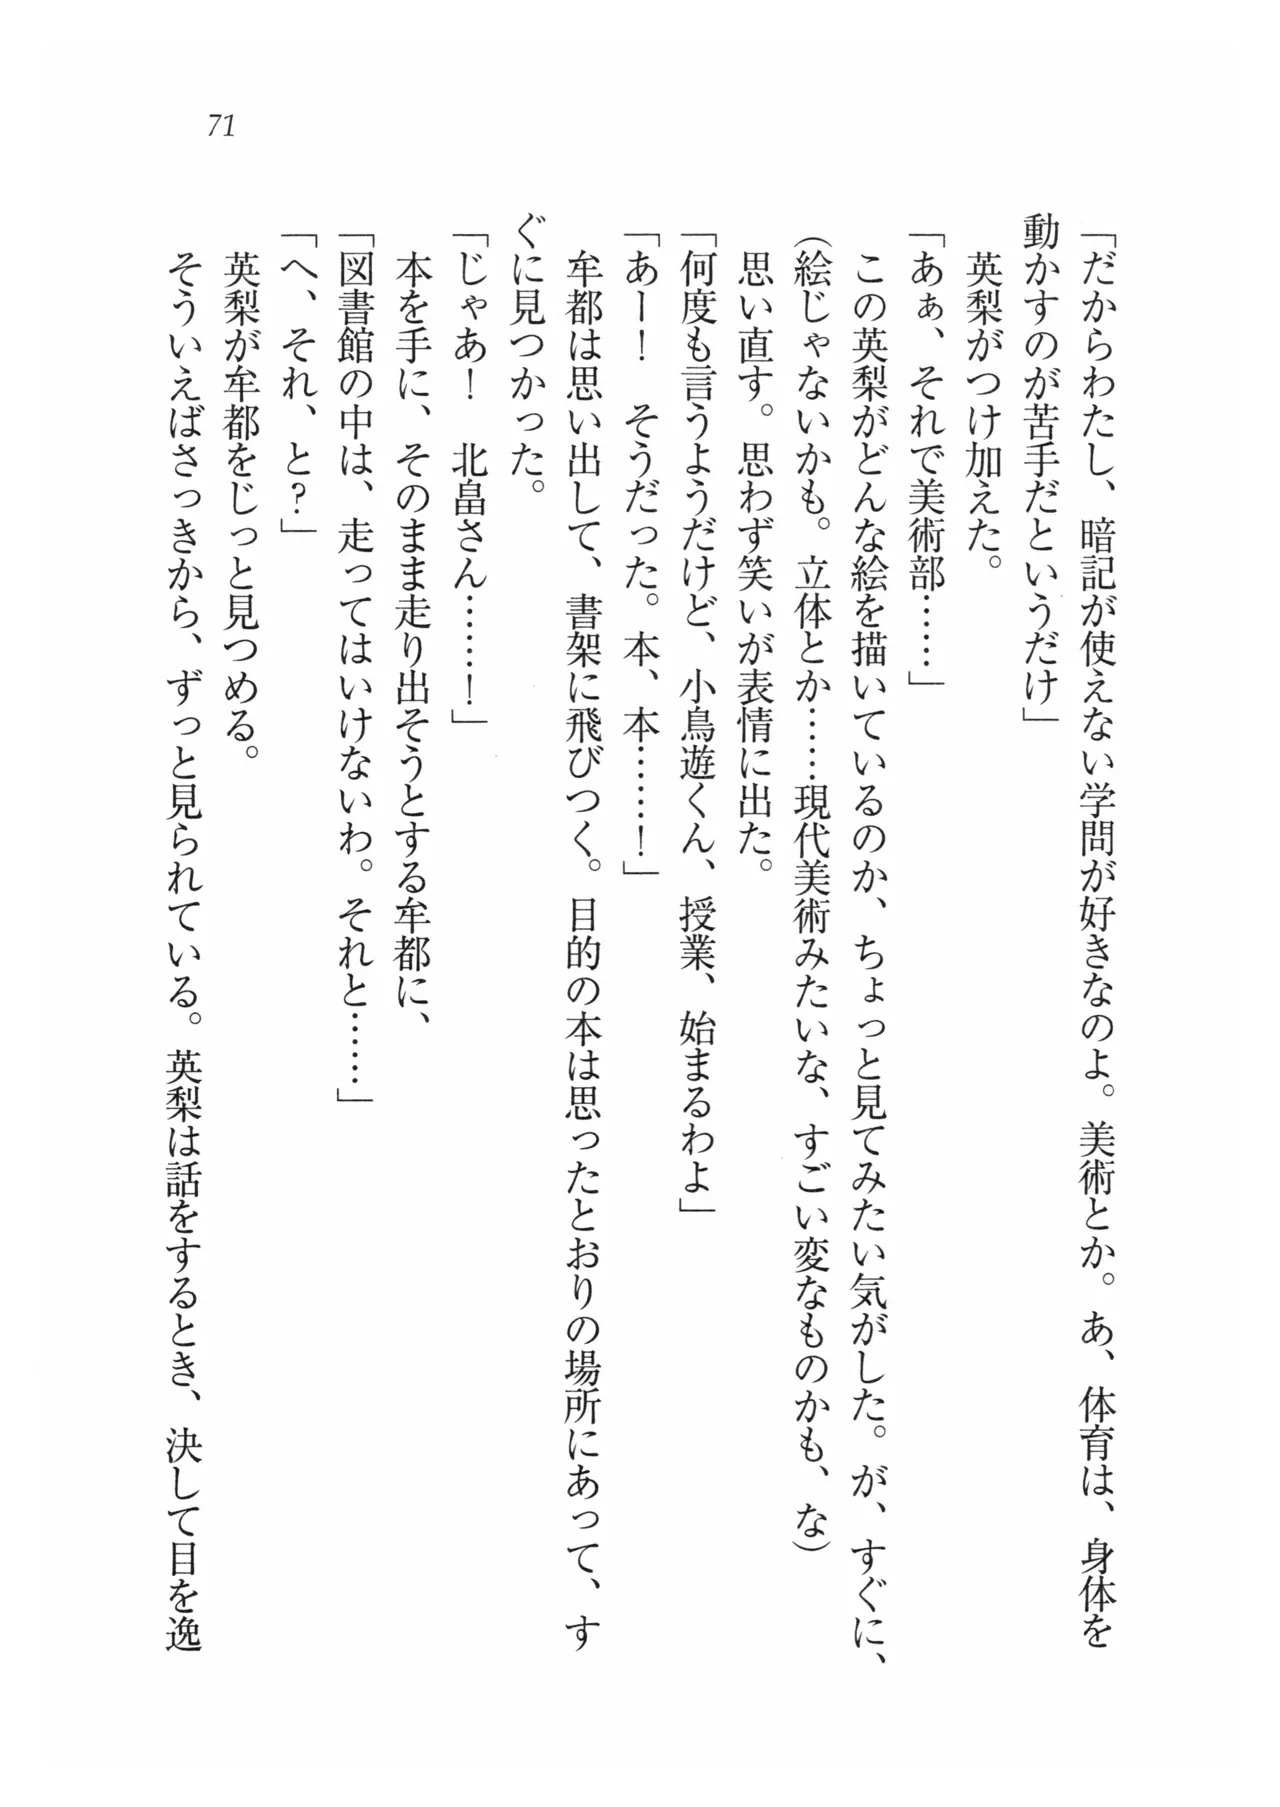 71
「だからわたし、暗記が使えない学問が好きなのよ。美術とか。あ、体育は、身体を
動かすのが苦手だというだけ」
英梨がつけ加えた。
「あぁ、それで美術部……」
この英梨がどんな絵を描いているのか、ちょっと見てみたい気がした。が、すぐに、
(絵じゃないかも。立体とか……現代美術みたいな、すごい変なものかも、な)
思い直す。思わず笑いが表情に出た。
「何度も言うようだけど、小鳥遊くん、授業、始まるわよ」
「あー！　そうだった。本、本……！」
牟都は思い出して、書架に飛びつく。目的の本は思ったとおりの場所にあって、す
ぐに見つかった。
「じゃあ！　北畠さん……！」
本を手に、そのまま走り出そうとする牟都に、
「図書館の中は、走ってはいけないわ。それと……」
「へ、それ、と？」
英梨が牟都をじっと見つめる。
そういえばさっきから、ずっと見られている。英梨は話をするとき、決して目を逸